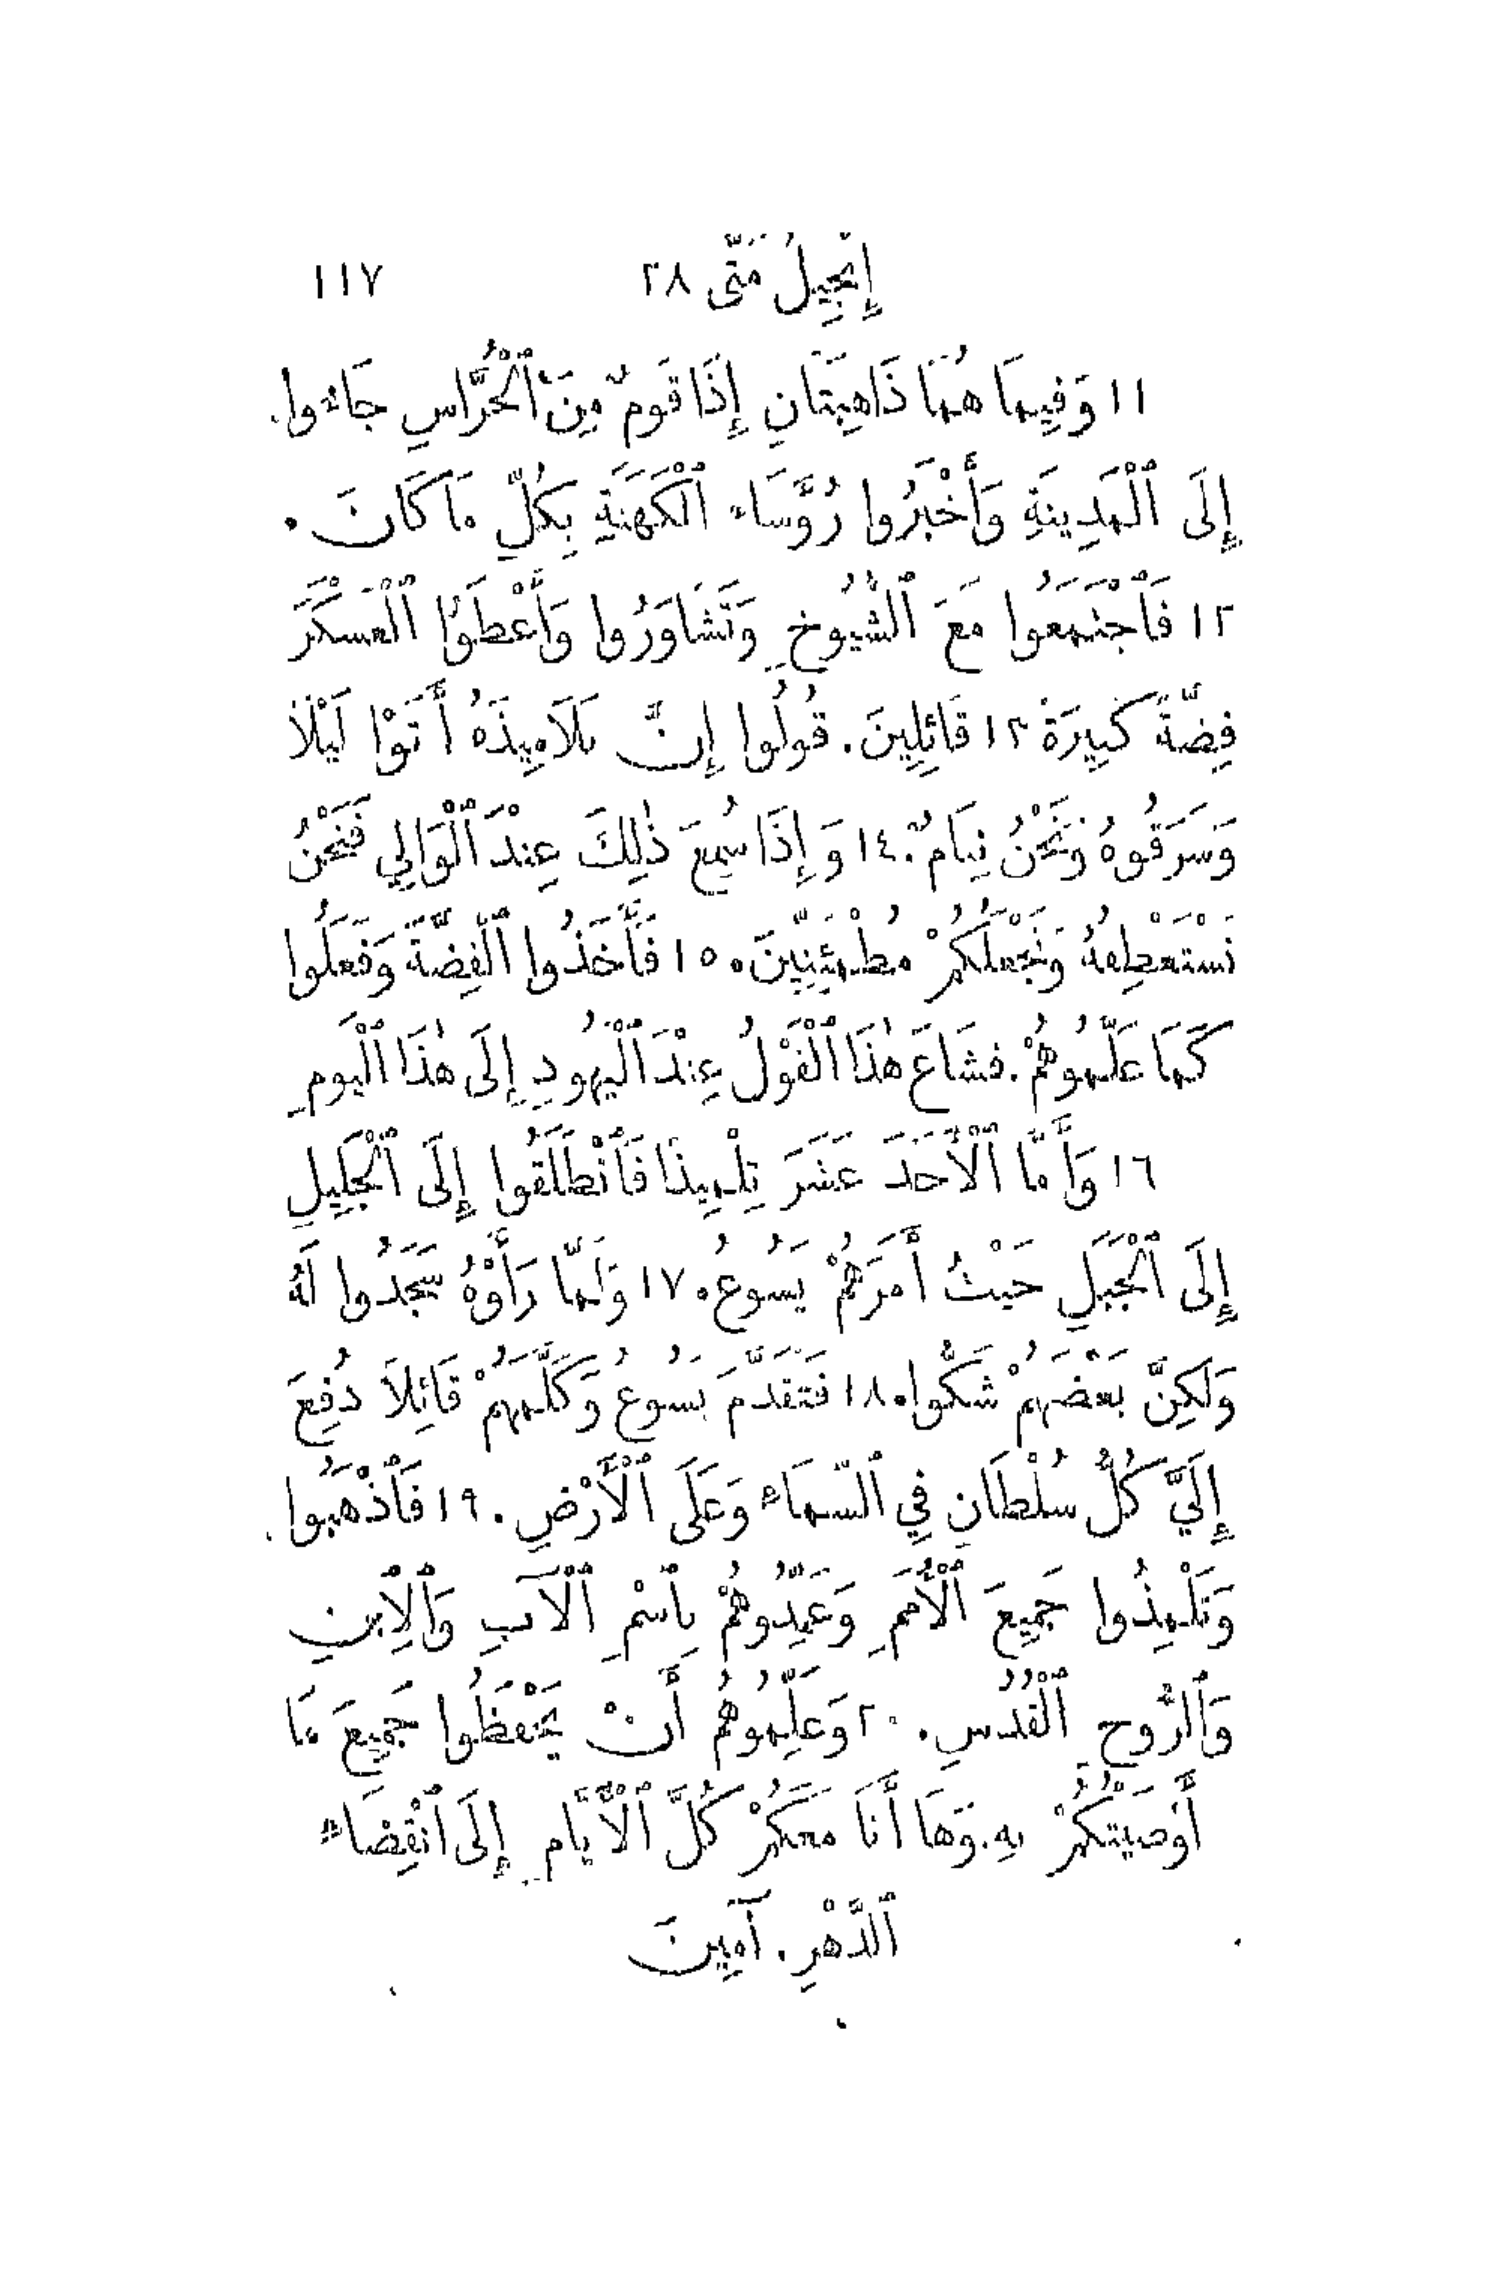 إِنْجِيلُ مَتَّى ٢٨ ١١٧
١١ وَفِيمَا هُمَا ذَاهِبَتَانِ إِذَا قَومٌ مِنَ ٱلْحُرَّاسِ جَاءُوا
إِلَى ٱلْمَدِينَةِ وَأَخْبَرُوا رُؤَسَاء ٱلْكَهَنَةِ بِكُلِّ مَا كَانَ.
١٢ فَٱجْتَمَعُوا مَعَ ٱلشُّيُوخِ وَتَشَاوَرُوا وَأَعْطَوُا ٱلْعَسْكَرَ
فِضَّةً كَبِيرَةً ١٣ قَائِلِينَ. قُولُوا إِنَّ تَلَامِيذَهُ أَتَوْا لَيْلاً
وَسَرَقُوهُ وَنَحْنُ نِيَامٌ. ١٤ وَإِذَا سُمِعَ ذٰلِكَ عِنْدَ ٱلْوَالِي فَنَحْنُ
نَسْتَعْطِفُهُ وَنَجْعَلُكُمْ مُطْمَئِنِّينَ. ١٥ فَأَخَذُوا ٱلْفِضَّةَ وَفَعَلُوا
كَمَا عَلَّمُوهُمْ. فشَاعَ هٰذَا ٱلْقَوْلُ عِنْدَ ٱلْيَهُودِ إِلَى هٰذَا ٱلْيَومِ
١٦ وَأَمَّا ٱلْأَحَدَ عَشَرَ تِلْمِيذًا فَٱنْطَلَقُوا إِلَى ٱلْجَلِيلِ
إِلَى ٱلْجَبَلِ حَيْثُ أَمَرَهُمْ يَسُوعُ. ١٧ وَلَمَّا رَأَوْهُ سَجَدُوا لَهُ
وَلكِنَّ بَعْضَهُمْ شَكُّوا. ١٨ فَتَقَدَّمَ يَسُوعُ وَكَلَّمَهُمْ قَائِلاً دُفِعَ
إِلَيَّ كُلُّ سُلْطَانٍ فِي ٱلسَّمَاءِ وَعَلَى ٱلْأَرْضِ. ١٩ فَٱذْهَبُوا
وَتَلْمِذُوا جَمِيعَ ٱلْأُمَمِ وَعَمِّدُوهُمْ بِٱسْمِ ٱلْآبِ وَٱلِٱبْنِ
وَٱلرُّوحِ ٱلْقُدُسِ. ٢٠ وَعَلِّمُوهُم أَنْ يَحْفَظُوا جَمِيعَ مَا
أَوْصَيْتُكُمْ بِهِ. وَهَا أَنَا مَعَكُمْ كُلَّ ٱلْأَيَّامِ إِلَى ٱنْقِضَاءِ
ٱلدَّهْرِ. آمِينَ